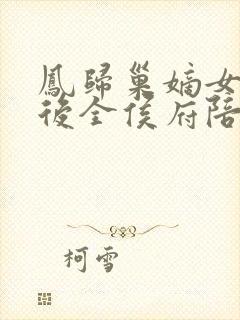 鳳歸巢嫡女
後全侯府陪
柯雪